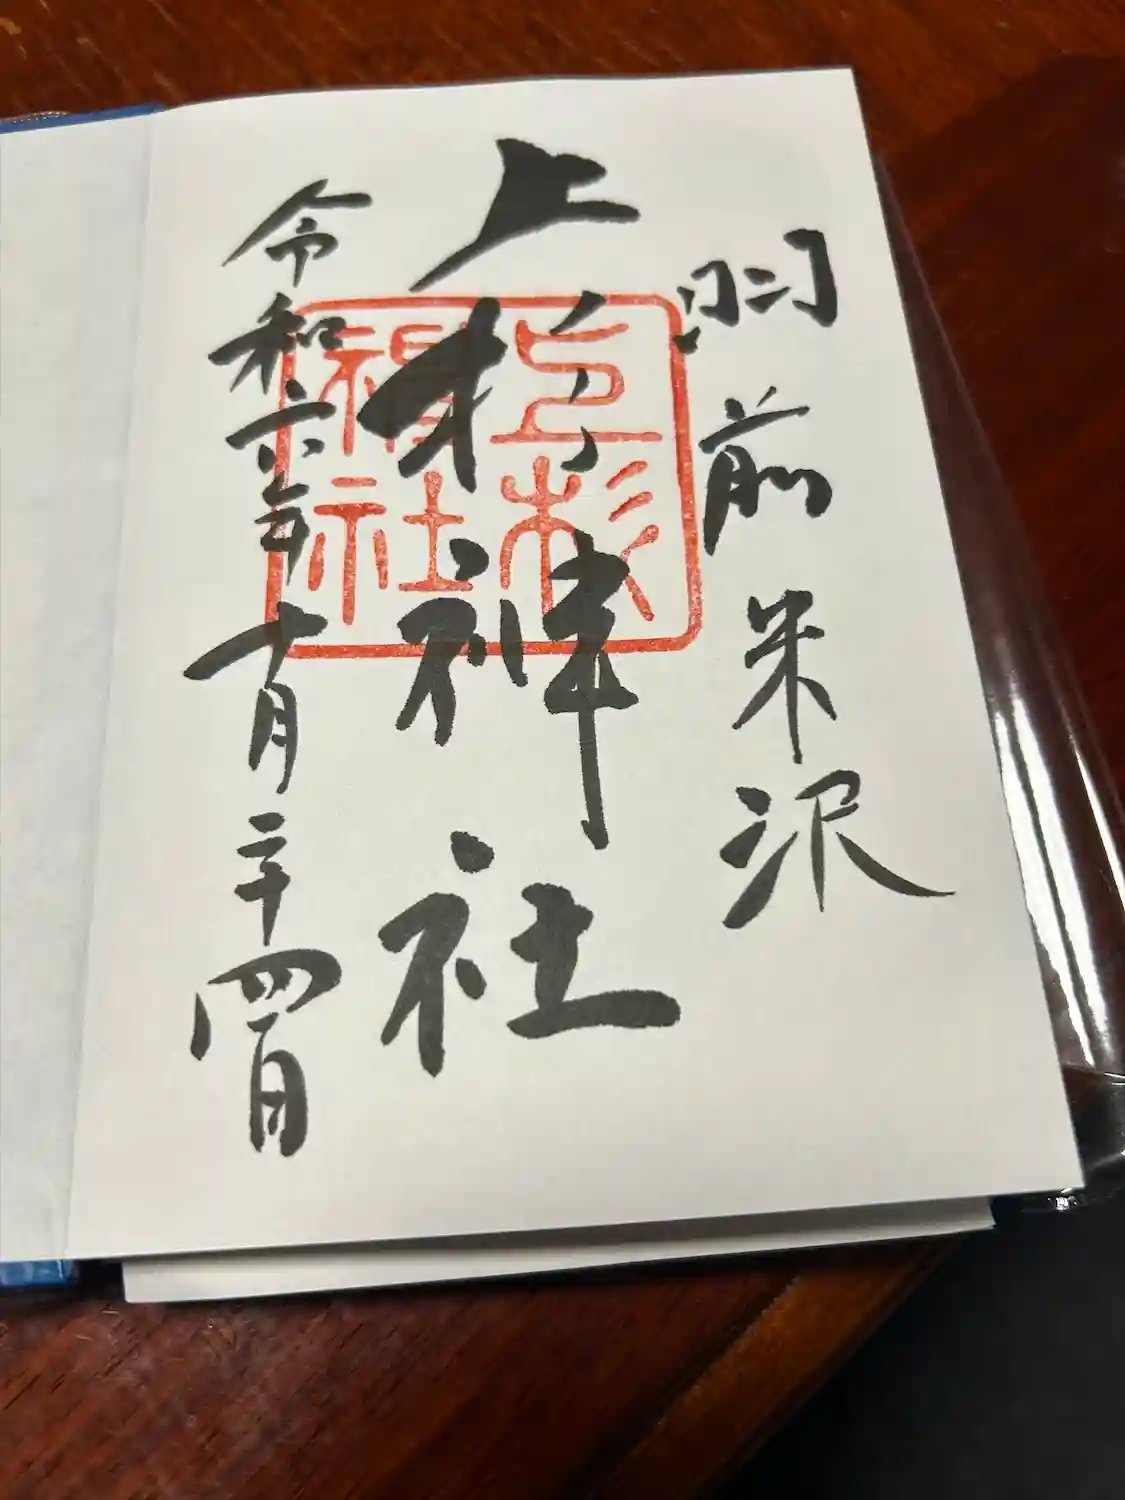 羽前米沢
上杉神社
令和六年十月二十四日
上杉
神社